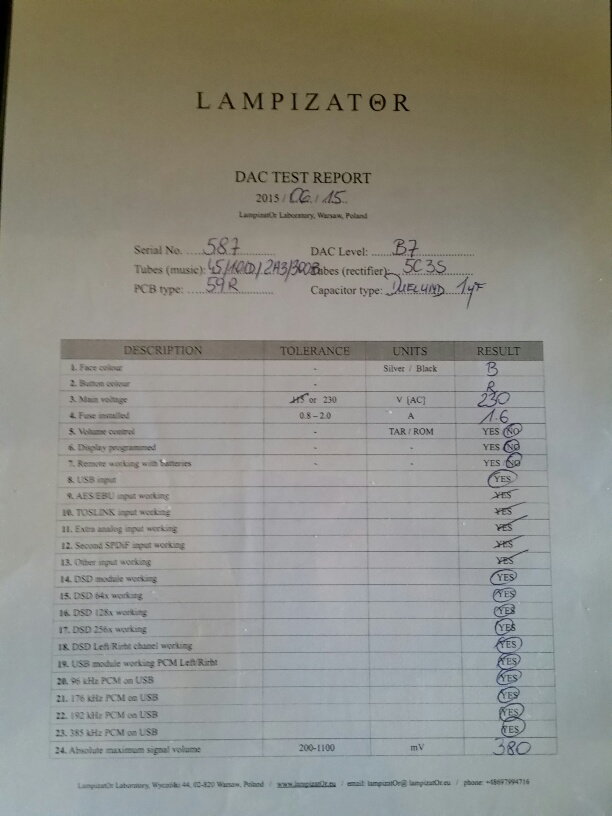 LAMPIZATΘR
DAC TEST REPORT
2015 / 06 / 15
LampizatOr Laboratory, Warsaw, Poland
Serial No. ....587............ DAC Level: .....B7............
Tubes (music): 45/101D/2A3/300B Tubes (rectifier): 5C3S
PCB type: ....59R............ Capacitor type: DUELUND 1µF
DESCRIPTION TOLERANCE UNITS RESULT
1. Face colour - Silver / Black B
2. Button colour - R
3. Main voltage 115 or 230 V [AC] 230
4. Fuse installed 0.8 – 2.0 A 1.6
5. Volume control - TAR / ROM YES NO
6. Display programmed - - YES NO
7. Remote working with batteries - - YES NO
8. USB input YES
9. AES/EBU input working YES
10. TOSLINK input working YES
11. Extra analog input working YES
12. Second SPDiF input working YES
13. Other input working YES
14. DSD module working YES
15. DSD 64x working YES
16. DSD 128x working YES
17. DSD 256x working YES
18. DSD Left/Rirht chanel working YES
19. USB module working PCM Left/Rirht YES
20. 96 kHz PCM on USB YES
21. 176 kHz PCM on USB YES
22. 192 kHz PCM on USB YES
23. 385 kHz PCM on USB YES
24. Absolute maximum signal volume 200-1100 mV 380
LampizatOr Laboratory, Wycziółki 44, 02-820 Warsaw, Poland / www.lampizatOr.eu / email: lampizatOr@lampizatOr.eu / phone: +48697994716